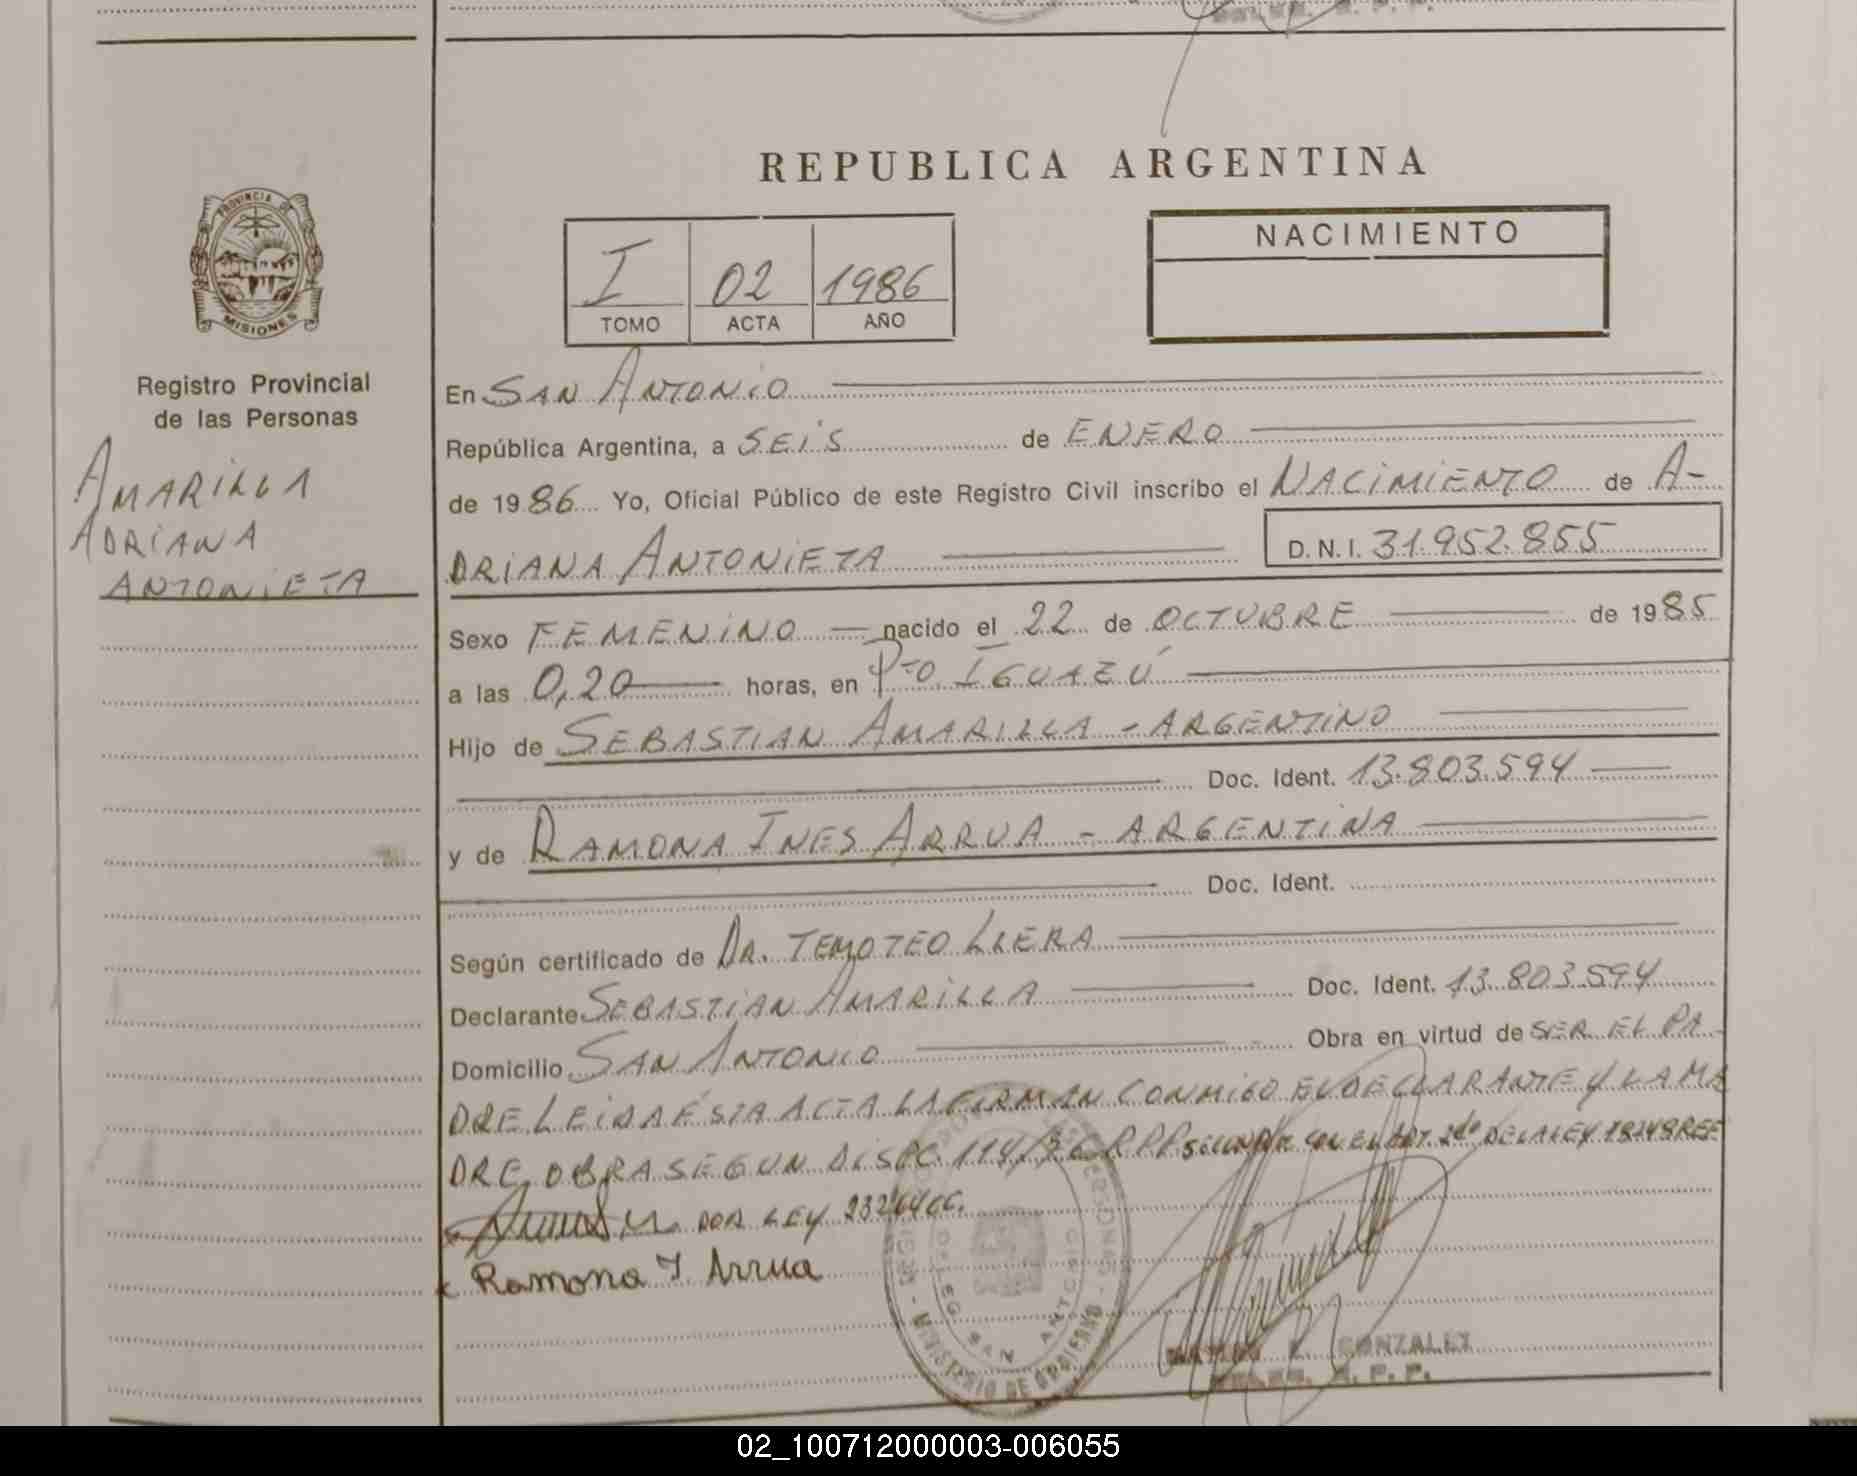 REPUBLICA ARGENTINA
PROVINCIA DE
MISIONES
I 02 1986
TOMO ACTA AÑO
NACIMIENTO
Registro Provincial
de las Personas
AMARILLA
ADRIANA
ANTONIETA
En SAN ANTONIO
República Argentina, a SEIS de ENERO
de 1986 Yo, Oficial Público de este Registro Civil inscribo el NACIMIENTO de A-
DRIANA ANTONIETA D.N.I. 31.952.855
Sexo FEMENINO nacido el 22 de OCTUBRE de 1985
a las 0,20 horas, en Pto IGUAZÚ
Hijo de SEBASTIAN AMARILLA - ARGENTINO
Doc. Ident. 13.803.594
y de RAMONA INES ARRUA - ARGENTINA
Doc. Ident.
Según certificado de DR. TEMOTEO LLERA
Declarante SEBASTIAN AMARILLA Doc. Ident. 13.803.594
Domicilio SAN ANTONIO Obra en virtud de SER EL PA-
DRE LEIDA ÉSTA ACTA LA FIRMAN CONMIGO EL DECLARANTE Y LA MA
DRE, OBRA SEGUN DISPC. 114/ RPP CON EL ART. 2do DE LA LEY 18248 REF
POR LEY 23264 CC.
Ramona I. Arrua
MINISTERIO DE GOBIERNO
SAN ANTONIO
GONZALEZ
R. P. P.
02_100712000003-006055